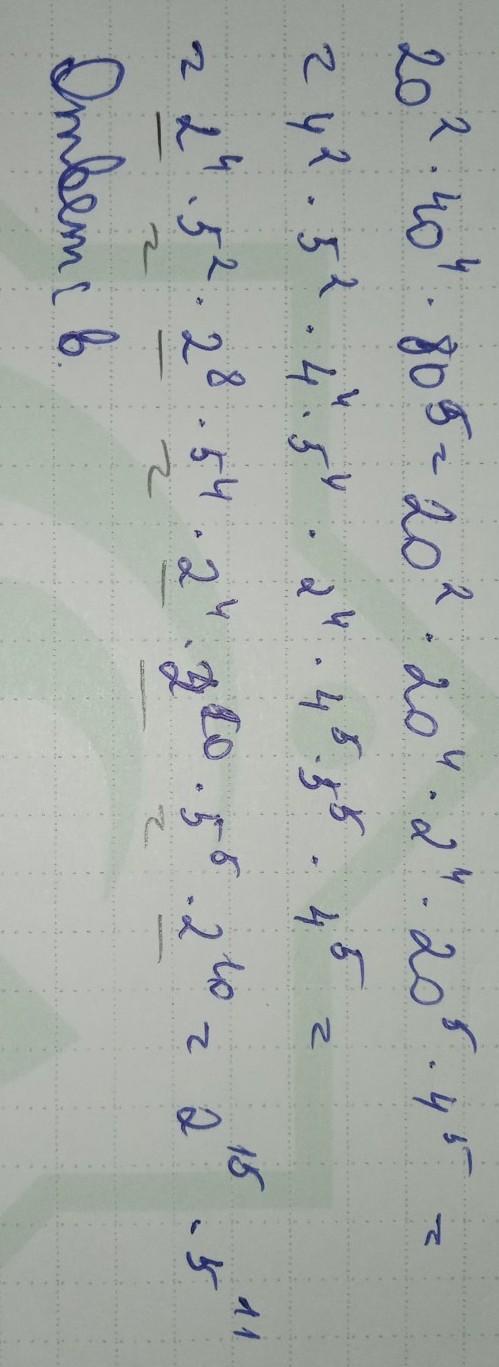 20² · 40⁴ · 80⁵ = 20² · 20⁴ · 2⁴ · 20⁵ · 4⁵ =
= 4² · 5² · 4⁴ · 5⁴ · 2⁴ · 4⁵ · 5⁵ · 4⁵ =
= 2⁴ · 5² · 2⁸ · 5⁴ · 2⁴ · 2¹⁰ · 5⁵ · 2¹⁰ = 2¹⁵ · 5¹¹
Ответ: в.